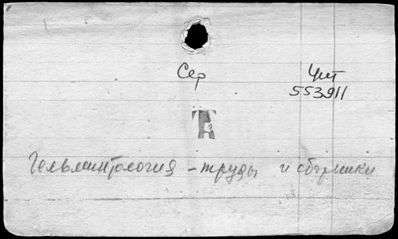 Сер Чит
553911
Гельминтология - труды и сборники